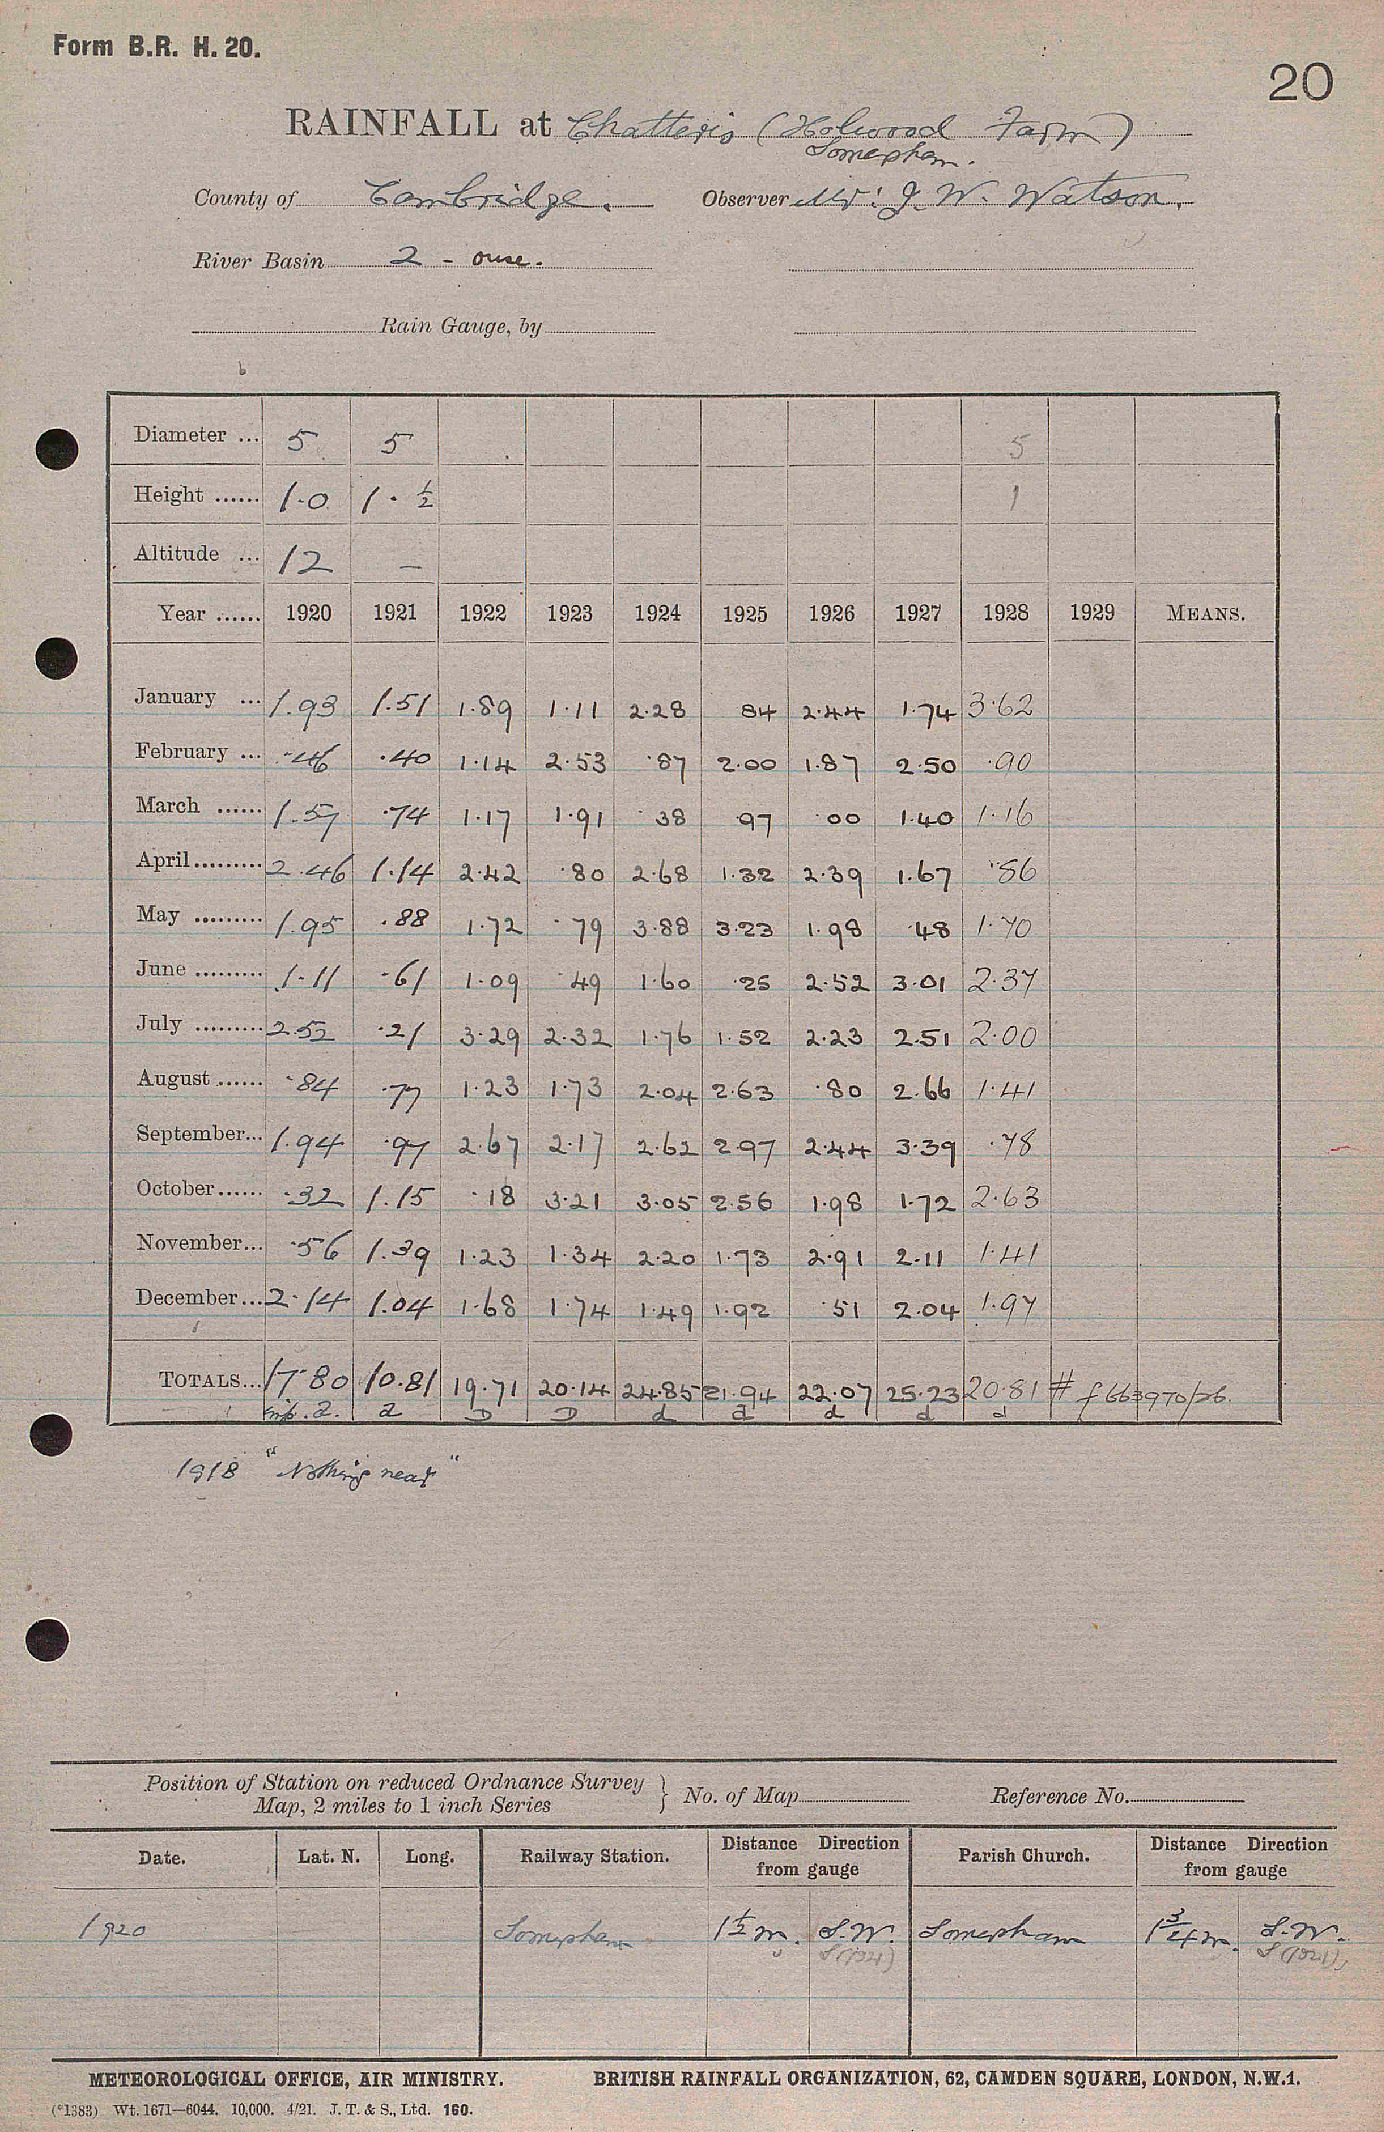 Form B.R. H. 20.
20
RAINFALL at Chatteris (Holwood Farm)
Somersham.
County of Cambridge. Observer Mr. J. W. Watson.
River Basin 2 - Ouse.
Rain Gauge, by
Diameter ... 5 5 5
Height ...... 1.0 1. ½ 1
Altitude ... 12 —
Year ...... 1920 1921 1922 1923 1924 1925 1926 1927 1928 1929 MEANS.
January ... 1.93 1.51 1.89 1.11 2.28 84 2.44 1.74 3.62
February ... .46 .40 1.14 2.53 .87 2.00 1.87 2.50 .90
March ...... 1.57 .74 1.17 1.91 .38 97 .00 1.40 1.16
April ......... 2.46 1.14 2.42 .80 2.68 1.32 2.39 1.67 .86
May ......... 1.95 .88 1.72 .79 3.88 3.23 1.98 .48 1.70
June ......... 1.11 .61 1.09 .49 1.60 .25 2.52 3.01 2.37
July ......... 2.52 .21 3.29 2.32 1.76 1.52 2.23 2.51 2.00
August ...... .84 .77 1.23 1.73 2.04 2.63 .80 2.66 1.41
September... 1.94 .97 2.67 2.17 2.62 2.97 2.44 3.39 .78
October ...... .32 1.15 .18 3.21 3.05 2.56 1.98 1.72 2.63
November... .56 1.39 1.23 1.34 2.20 1.73 2.91 2.11 1.41
December ... 2.14 1.04 1.68 1.74 1.49 1.92 .51 2.04 1.97
TOTALS... 17.80 10.81 19.71 20.14 24.85 21.94 22.07 25.23 20.81 # f 663970/26.
a. a D D d d d d d
1918 "Nothing near"
Position of Station on reduced Ordnance Survey
Map, 2 miles to 1 inch Series } No. of Map Reference No.
Date. Lat. N. Long. Railway Station. Distance Direction from gauge Parish Church. Distance Direction from gauge
1920 Somersham 1½ m. S.W. Somersham 1¾ m. S.W.
S (1921)
METEOROLOGICAL OFFICE, AIR MINISTRY. BRITISH RAINFALL ORGANIZATION, 62, CAMDEN SQUARE, LONDON, N.W.1.
(*1383) Wt. 1671—6044. 10,000. 4/21. J. T. & S., Ltd. 160.